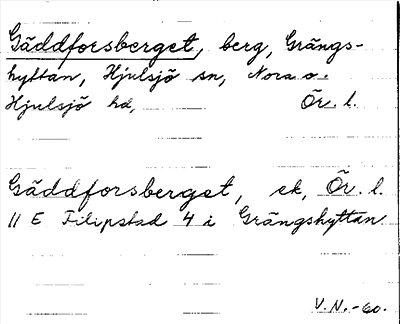 Gäddforsberget, berg, Grängs-
hyttan, Hjulsjö sn, Nora o.
Hjulsjö hd, Ör. l.
Gäddforsberget, ek, Ör. l.
11 E Filipstad 4 i Grängshyttan
V.N.-60.